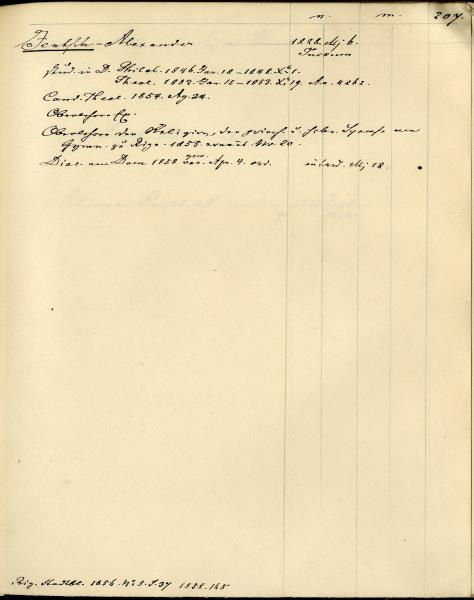 n. m. 207.
Jentsch - Alexander 1828. Mj 6.
Tuckum
stud. in D. Philol. 1846. Jan. 18 - 1848.
Theol. 1852. Jan. 15 - 1853. 19. No. 4262.
Cand. Theol. 1854. Ag. 24.
Oberlehrer
Oberlehrer der Religion, der griech. u. hebr. Sprache am
Gymn. zu Riga 1855. ernannt Nov. 20.
Diac. am Dom 1858 Apr. 4. ord. introd. Mj 18.
Rig. Stadtbl. 1856. No 5. S. 37 1858. 168